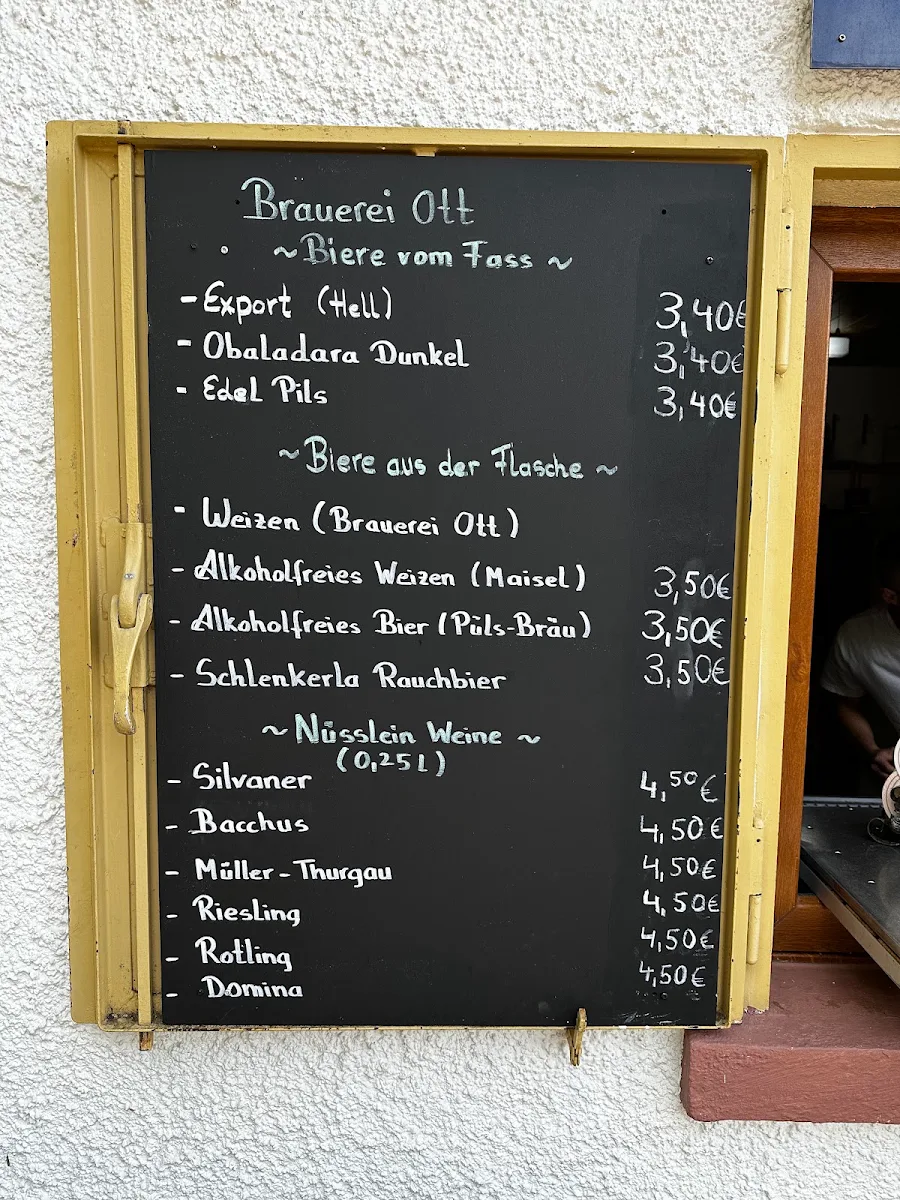 Brauerei Ott
~Biere vom Fass~
- Export (Hell) 3,40€
- Obaladara Dunkel 3,40€
- Edel Pils 3,40€
~Biere aus der Flasche~
- Weizen (Brauerei Ott)
- Alkoholfreies Weizen (Maisel) 3,50€
- Alkoholfreies Bier (Püls-Bräu) 3,50€
- Schlenkerla Rauchbier 3,50€
~Nüsslein Weine~
(0,25l)
- Silvaner 4,50€
- Bacchus 4,50€
- Müller-Thurgau 4,50€
- Riesling 4,50€
- Rotling 4,50€
- Domina 4,50€